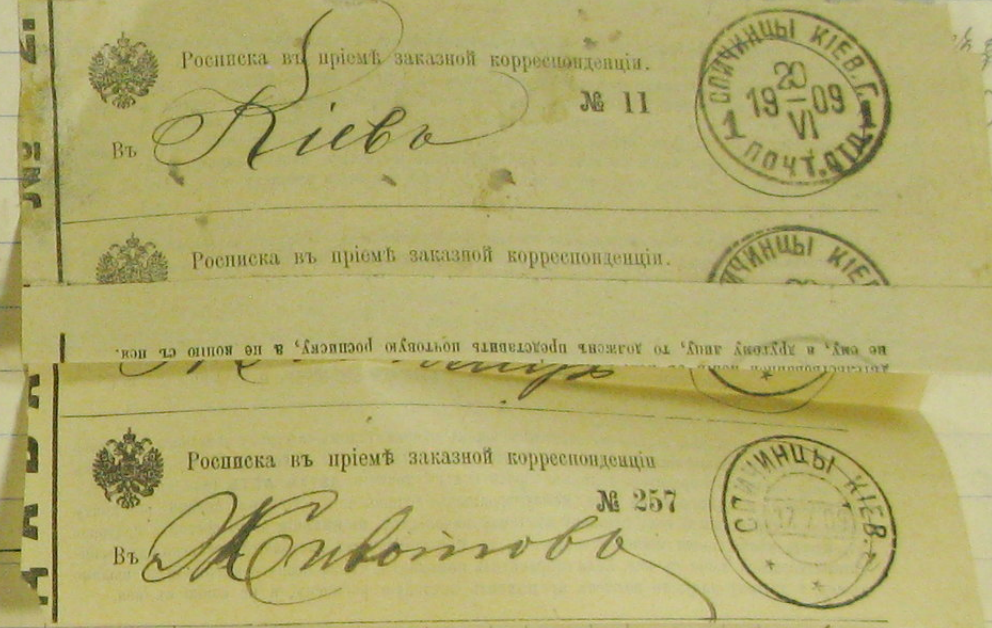 Росписка въ пріемѣ заказной корреспонденціи.
№ 11
Въ Кіевъ
СПИЧИНЦЫ КІЕВ. Г.
20
19 09
VI
1 ПОЧТ. ОТД. 1
Росписка въ пріемѣ заказной корреспонденціи.
СПИЧИНЦЫ КІЕВ
не ему, а другому лицу, то долженъ представить почтовую росписку, а не копію съ нея.
Росписка въ пріемѣ заказной корреспонденціи
№ 257
Въ Животовъ
СПИЧИНЦЫ КІЕВ. Г